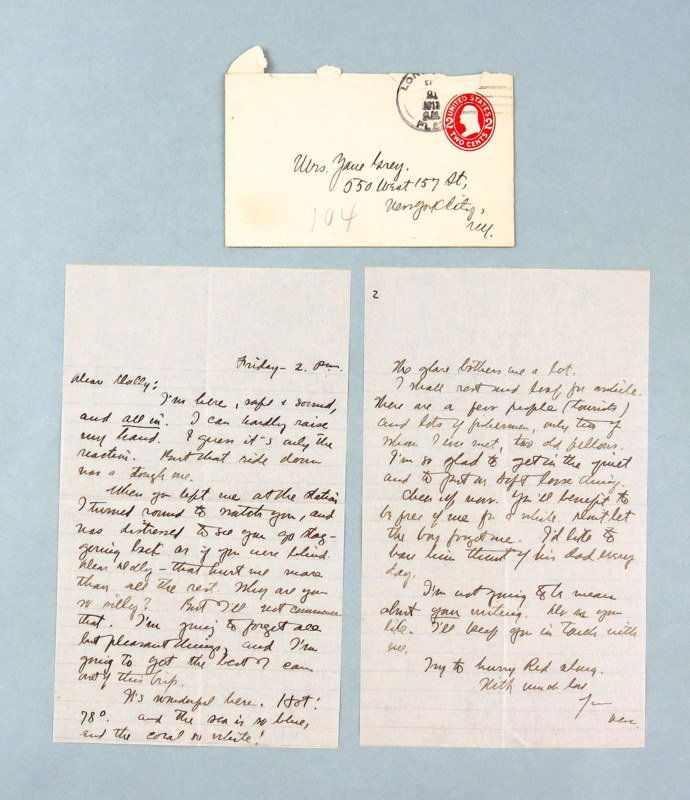 UNITED STATES
TWO CENTS
2 2
1913
Mrs. Zane Grey.
550 West 157 St,
New York City,
N.Y.
104
Friday - 2. P.m.
Dear Dolly:
I'm here, safe & sound,
and all in. I can hardly raise
my hand. I guess it's only the
reaction. But that ride down
was a tough one.
When you left me at the station
I turned round to watch you, and
was distressed to see you go stag-
gering back as if you were blind
Dear Dolly - that hurt me more
than all the rest. Why are you
so silly? But I'll not commence
that. I'm going to forget all
but pleasant things, and I'm
going to get the best I can
out of this trip.
It's wonderful here. Hot!
78°. and the sea is so blue,
and the coral so white!
2
The glare bothers me a lot.
I shall rest and loaf for awhile.
There are a few people (tourists)
and lots of fishermen, only two of
whom I've met, two old fellows.
I'm so glad to get in the quiet
and to put on soft loose things.
Cheer up now. You'll benefit to
be free of me for a while. Don't let
the boy forget me. I'd like to
have him think of his dad every
day.
I'm not going to be mean
about your writing. Do as you
like. I'll keep you in touch with
me.
Try to hurry Red along.
With much love